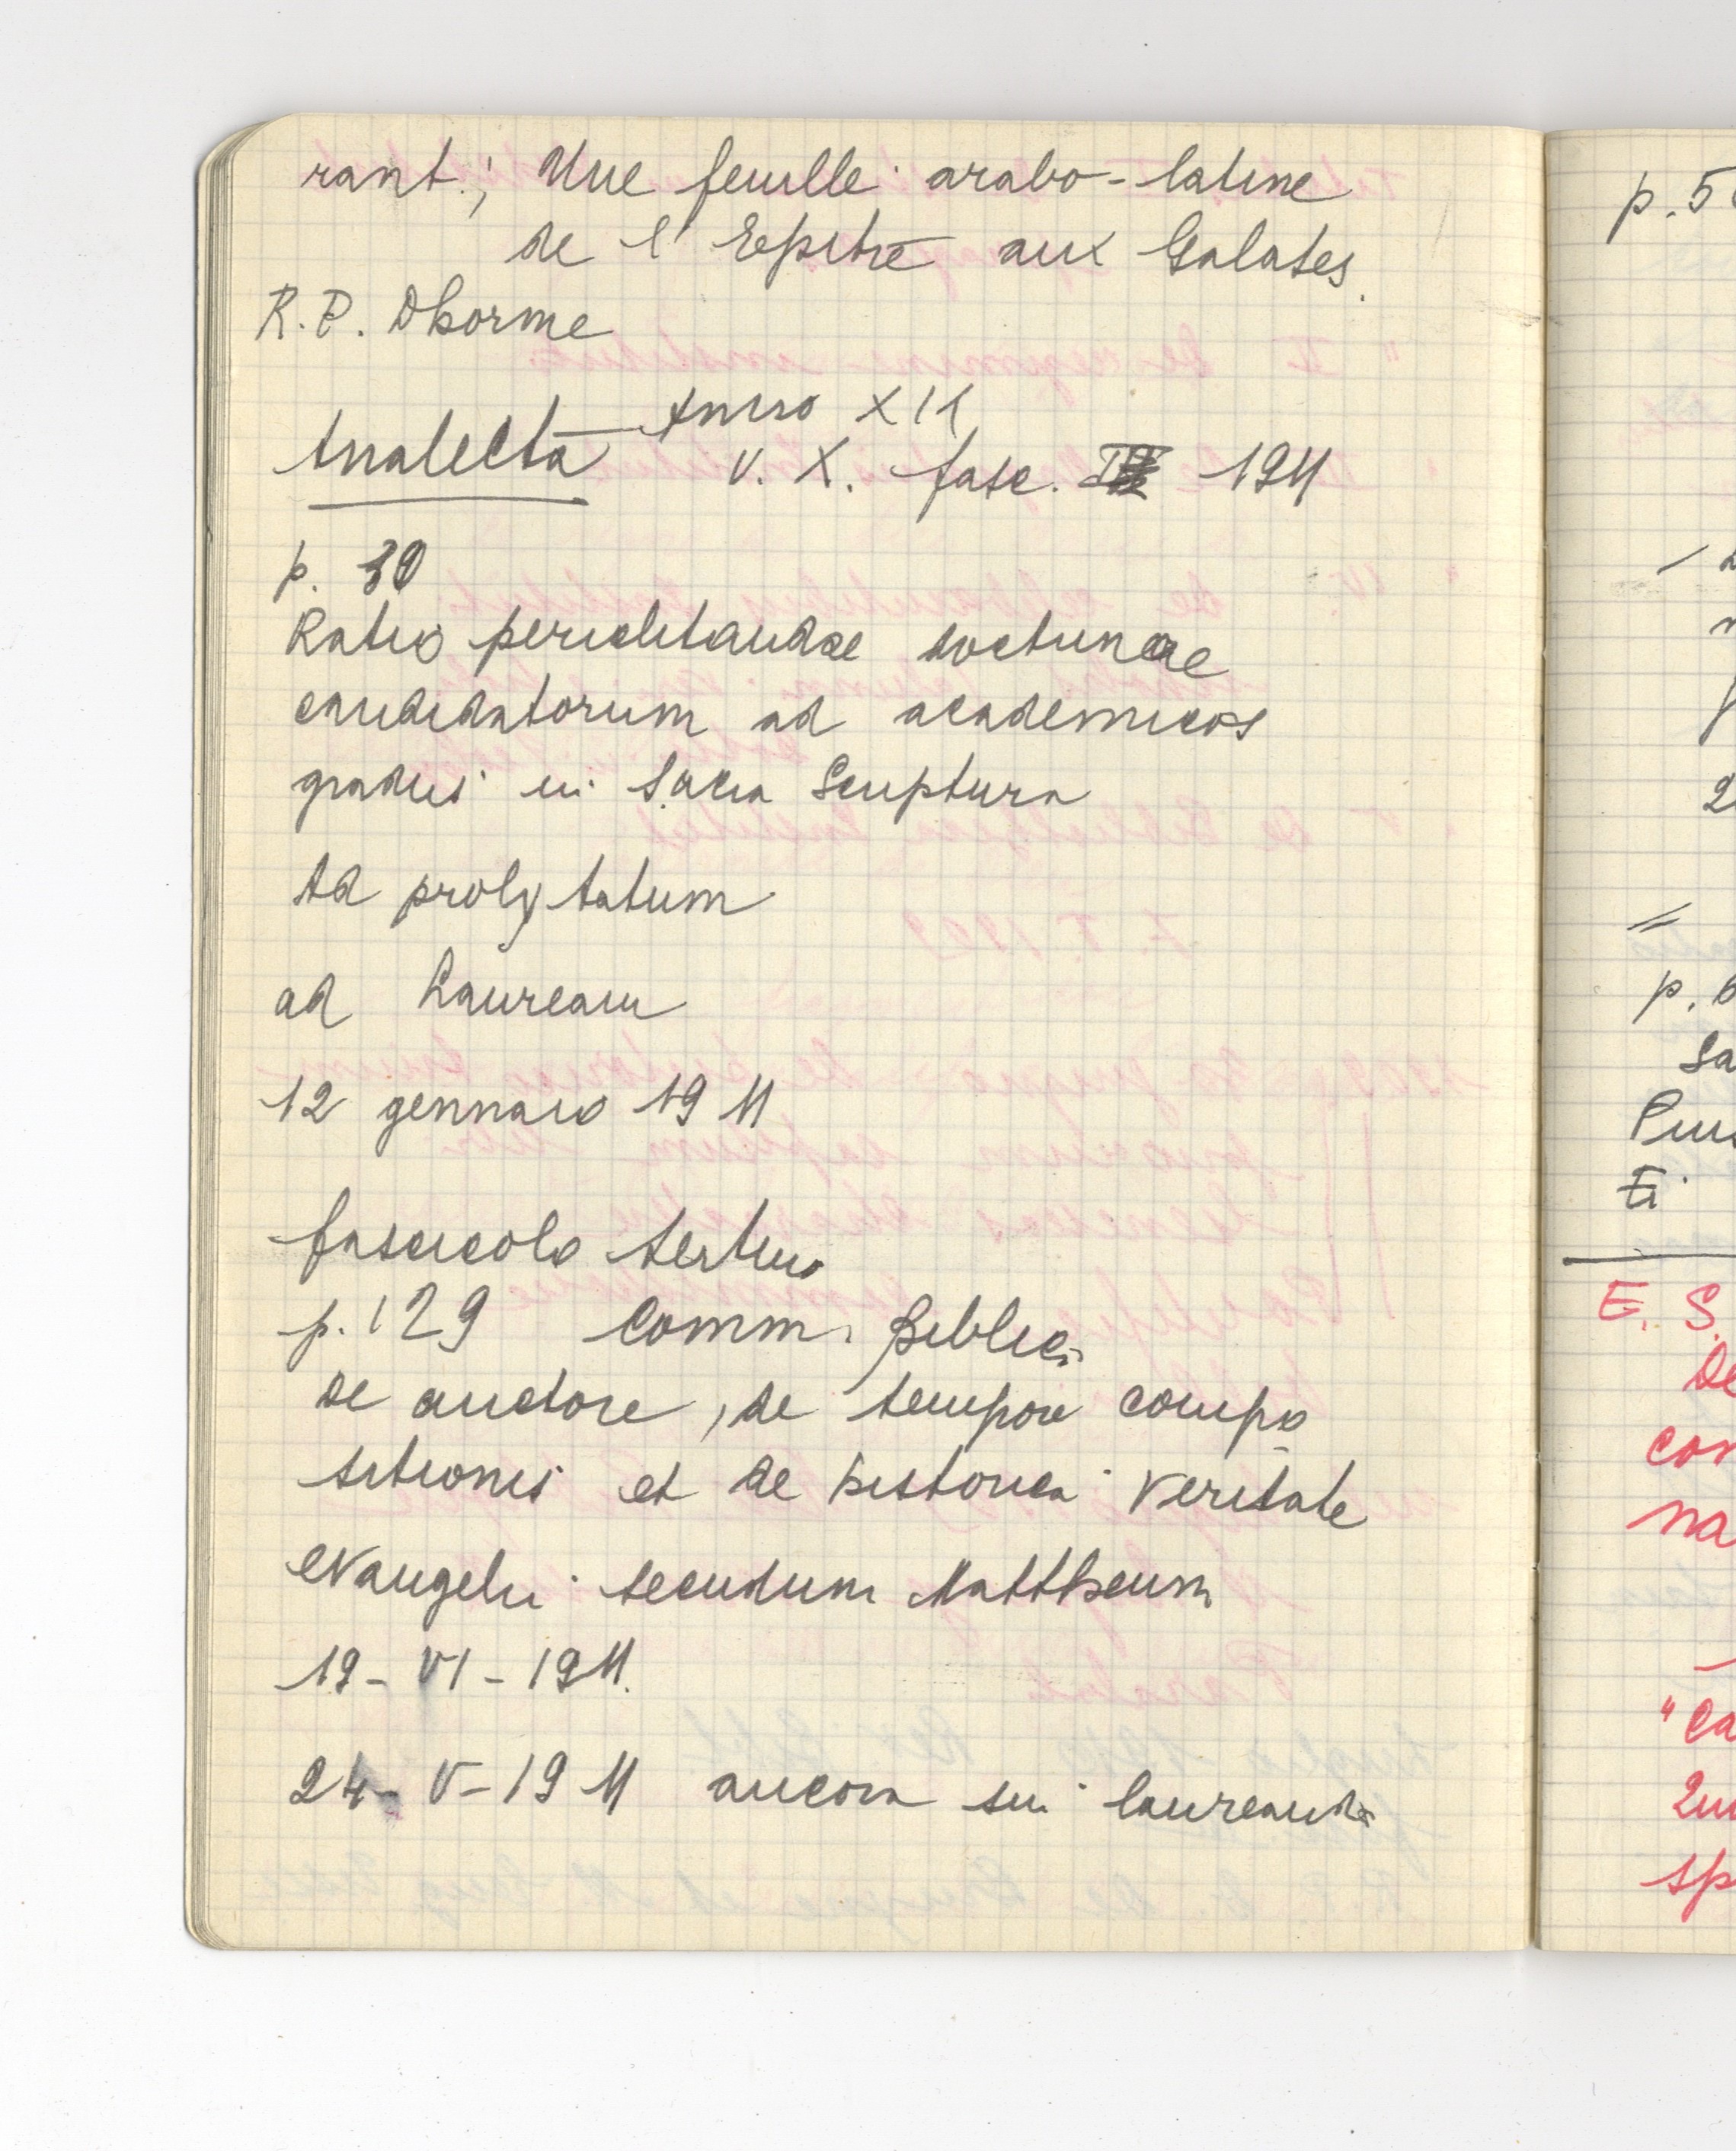 rant.; Une feuille arabo-latine
de l'Epitre aux Galates.
R.P. Dhorme
Analecta Anno XIX
V. X. fasc. 1911
p. 30
Ratio periclitandae doctrinae
candidatorum ad academicos
gradus in Sacra Scriptura
Ad prolytatum
ad Lauream
12 gennaio 1911
fascicolo tertio
p. 129 Comm. Biblic.
de auctore, de tempore compo
sitionis et de historica veritate
evangelii secundum Matthaeum
19-VI-1911.
24-V-1911 ancora sui laureandi
p. 5
p. 6
Sa
E. S.
De
con
na
"Ca
sp